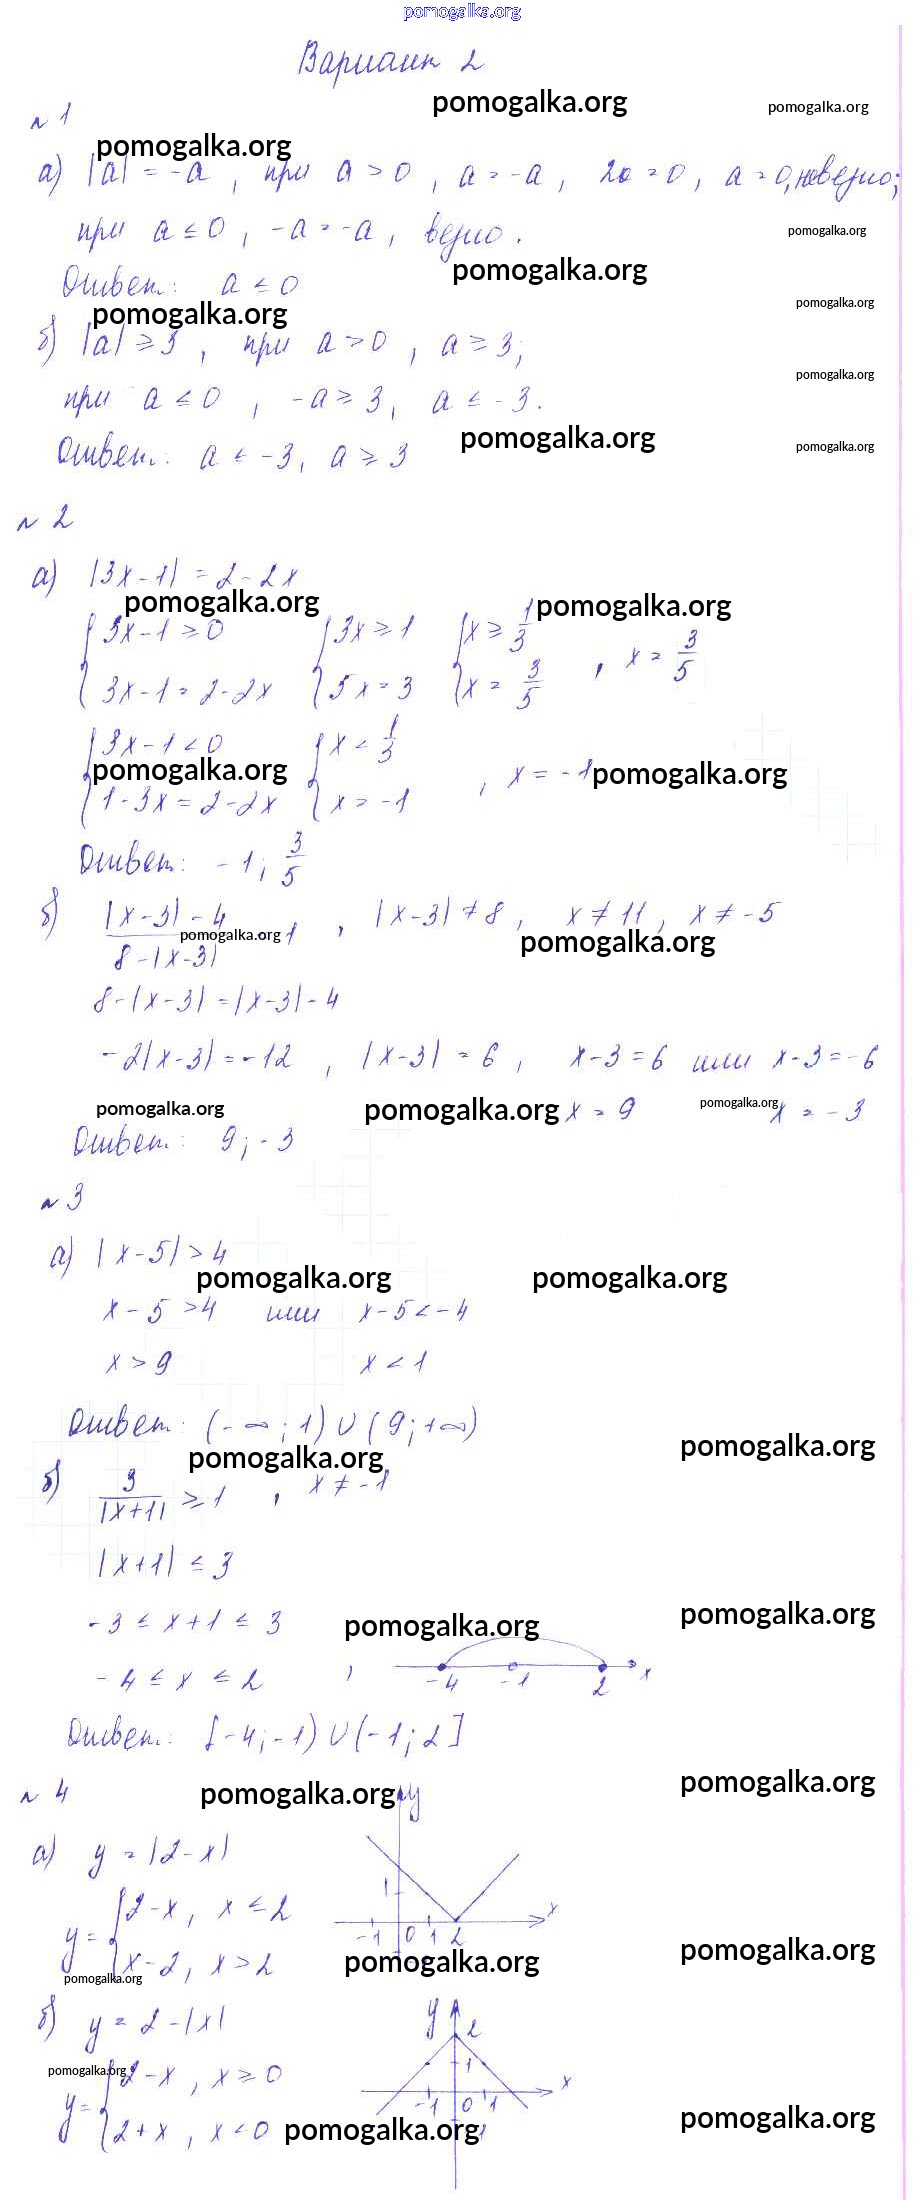 pomogalka.org
Вариант 2
pomogalka.org pomogalka.org
№ 1
pomogalka.org
а) |a| = -a , при a > 0 , a = -a , 2a = 0 , a = 0, неверно;
при a ≤ 0 , -a = -a , верно .
pomogalka.org
pomogalka.org
Ответ: a ≤ 0
pomogalka.org pomogalka.org
б) |a| ≥ 3 , при a > 0 , a ≥ 3;
pomogalka.org
при a ≤ 0 , -a ≥ 3, a ≤ -3.
pomogalka.org pomogalka.org
Ответ: a ≤ -3, a ≥ 3
№ 2
а) |3x-1| = 2-2x
pomogalka.org pomogalka.org
{ 3x-1 ≥ 0 { 3x ≥ 1 { x ≥ 1/3
3x-1 = 2-2x 5x = 3 x = 3/5 , x = 3/5
{ 3x-1 < 0 { x < 1/3
pomogalka.org , x = -1 pomogalka.org
1-3x = 2-2x x = -1
Ответ: -1; 3/5
б) |x-3| - 4 / 8-|x-3| = 1 , |x-3| ≠ 8, x ≠ 11, x ≠ -5
pomogalka.org pomogalka.org
8-|x-3| = |x-3| - 4
-2|x-3| = -12 , |x-3| = 6 , x-3 = 6 или x-3 = -6
pomogalka.org pomogalka.org x = 9 pomogalka.org x = -3
Ответ: 9; -3
№ 3
а) |x-5| > 4
pomogalka.org pomogalka.org
x-5 > 4 или x-5 < -4
x > 9 x < 1
Ответ: (-∞; 1) ∪ (9; +∞)
pomogalka.org pomogalka.org
б) 3/|x+1| ≥ 1 , x ≠ -1
|x+1| ≤ 3
-3 ≤ x+1 ≤ 3
pomogalka.org pomogalka.org
-4 ≤ x ≤ 2 , -4 -1 2 x
Ответ: [-4; -1) ∪ (-1; 2]
№ 4
pomogalka.org y pomogalka.org
а) y = |2-x|
y = { 2-x, x ≤ 2
x-2, x > 2
1 -1 0 1 2 x
pomogalka.org pomogalka.org pomogalka.org
б) y = 2-|x|
y 2
pomogalka.org
y = { 2-x , x ≥ 0
2+x , x < 0
1 -1 0 1 x
pomogalka.org pomogalka.org